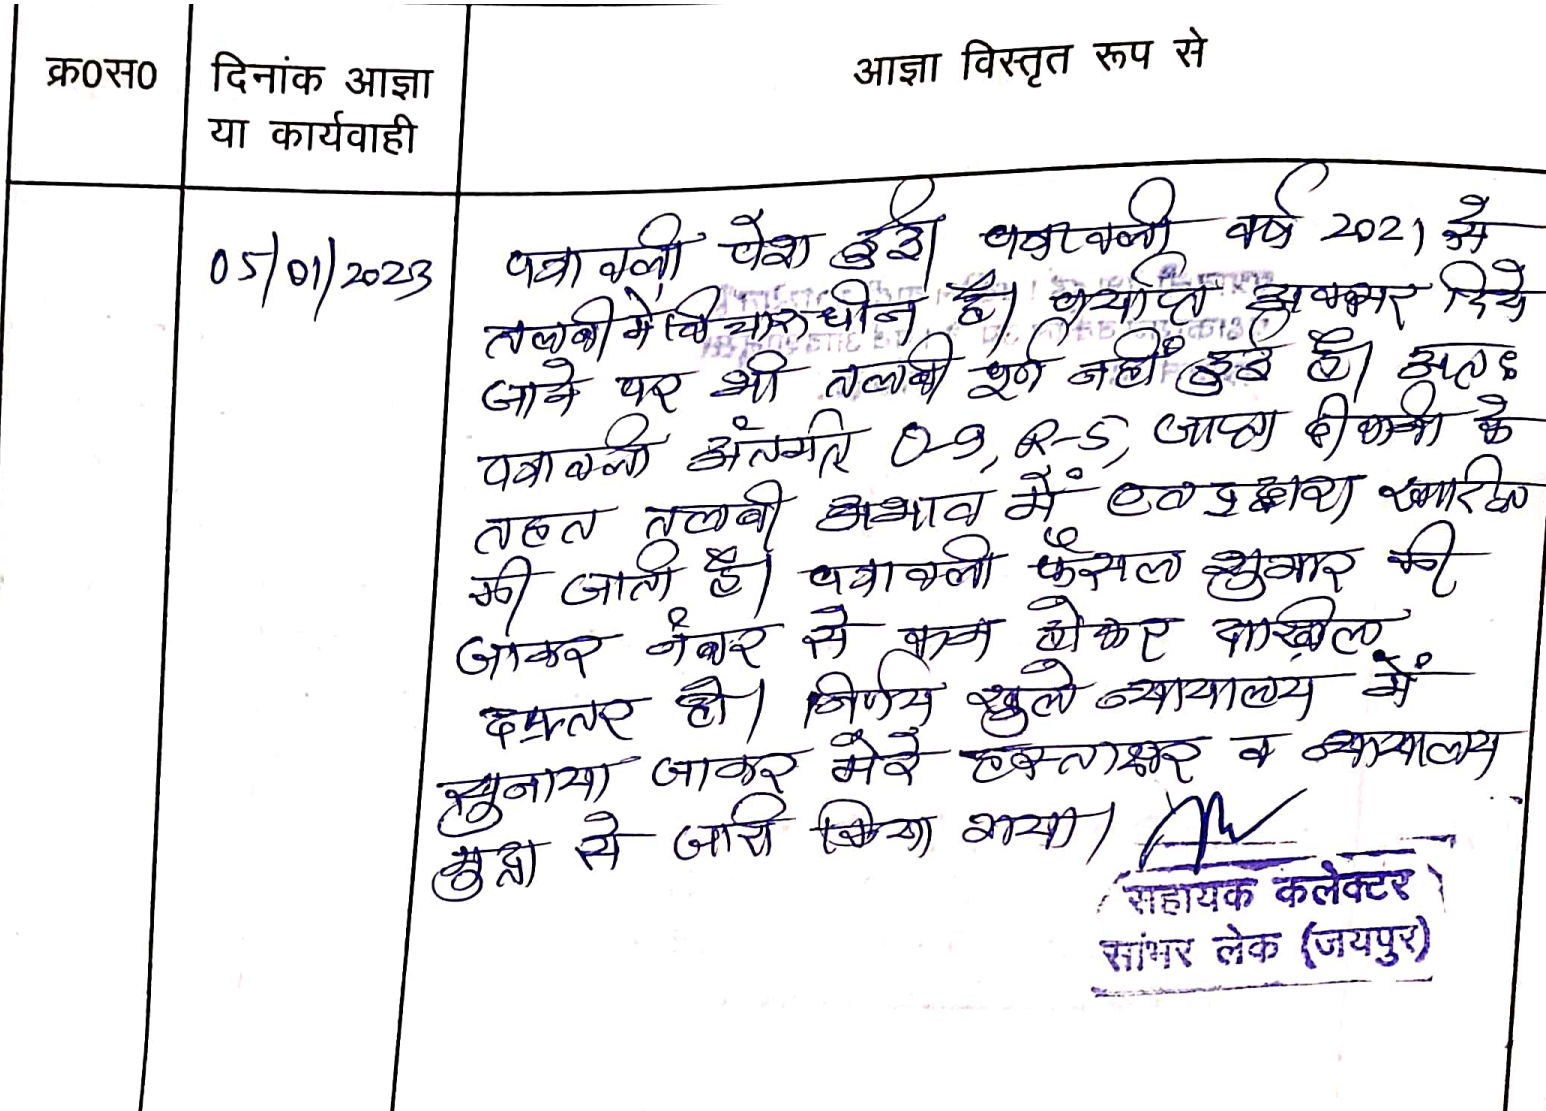 क्र0स0
दिनांक आज्ञा
या कार्यवाही
आज्ञा विस्तृत रूप से
05/01/2023
पत्रावली पेश हुई। पत्रावली वर्ष 2021 से
तलबी में विचाराधीन है। पर्याप्त अवसर दिये
जाने पर भी तलबी पूर्ण नहीं हुई है। अतः
पत्रावली अंतर्गत O-9, R-5, जाप्ता दीवानी के
तहत तलबी अभाव में एतद्द्वारा खारिज
की जाती है। पत्रावली फैसल शुमार की
जाकर नंबर से कम होकर दाखिल
दफ्तर हो। निर्णय खुले न्यायालय में
सुनाया जाकर मेरे हस्ताक्षर व न्यायालय
मुद्रा से जारी किया गया।
सहायक कलेक्टर
सांभर लेक (जयपुर)